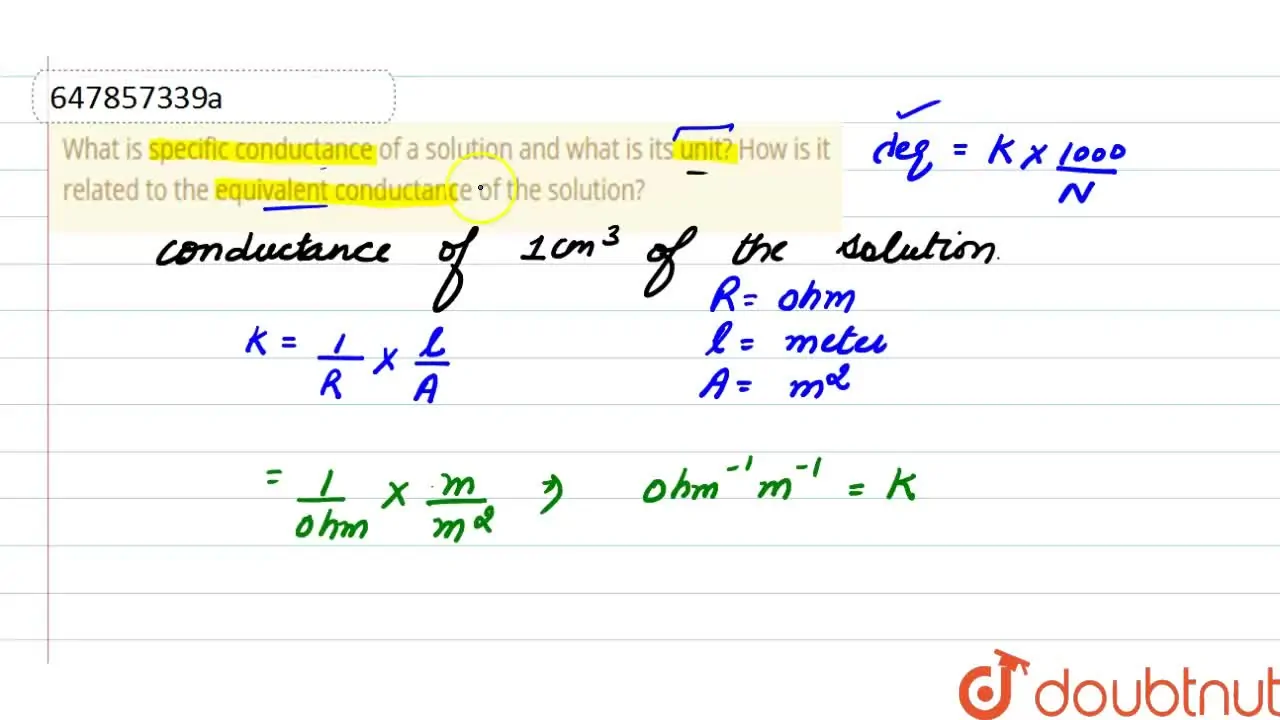 647857339a
What is specific conductance of a solution and what is its unit? How is it
related to the equivalent conductance of the solution?
deq = K × 1000/N
conductance of 1cm³ of the solution.
R = ohm
K = 1/R × l/A
l = meter
A = m²
= 1/ohm × m/m² ⇒ ohm⁻¹ m⁻¹ = K
doubtnut